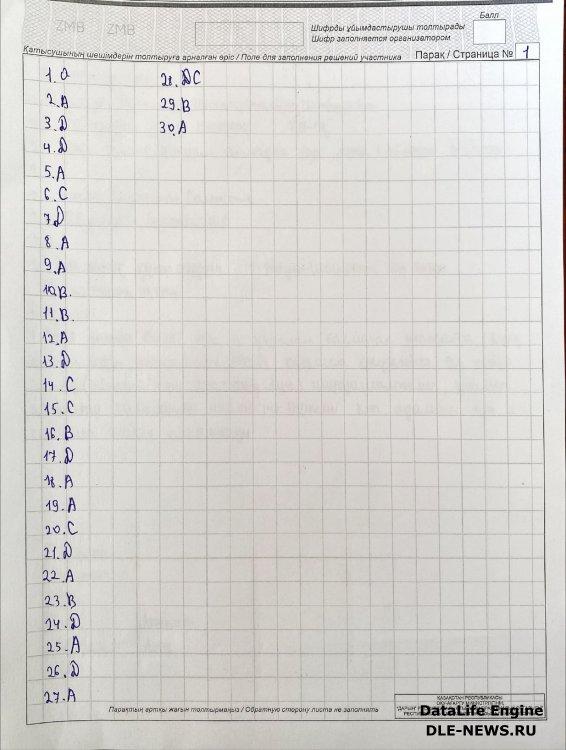 ZMB ZMB
Балл
Шифрды ұйымдастырушы толтырады
Шифр заполняется организатором
Қатысушының шешімдерін толтыруға арналған өріс / Поле для заполнения решений участника
Парақ / Страница № 1
1. a
2. A
3. D
4. D
5. A
6. C
7. D
8. A
9. A
10. B.
11. B.
12. A
13. D
14. C
15. C
16. B
17. D
18. A
19. A
20. C
21. D
22. A
23. B
24. D
25. A
26. D
27. A
28. DC
29. B
30. A
Парақтың артқы жағын толтырмаңыз / Обратную сторону листа не заполнять
ҚАЗАҚСТАН РЕСПУБЛИКАСЫ
ОҚУ-АҒАРТУ МИНИСТРЛІГІ
DataLife Engine
DLE-NEWS.RU